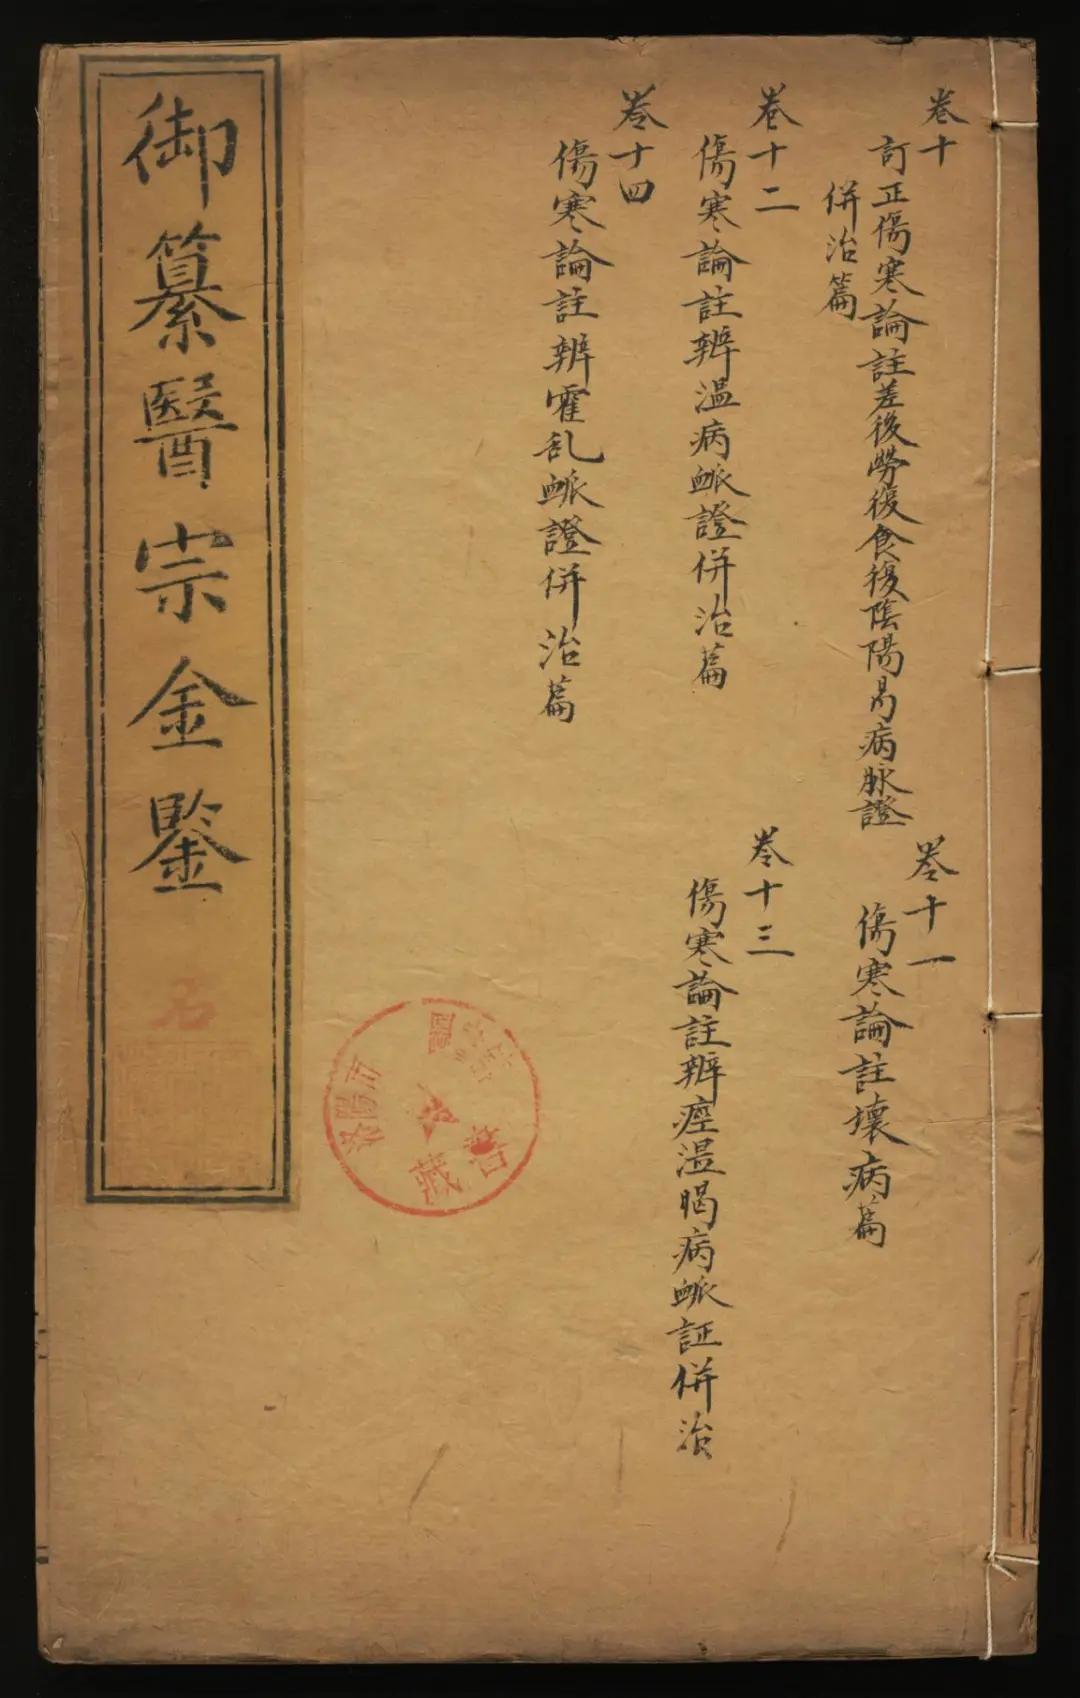 卷十
訂正傷寒論註差後勞復食復陰陽易病脉證
併治篇
卷十一
傷寒論註壞病篇
卷十二
傷寒論註辨温病衇證併治篇
卷十三
傷寒論註辨痓温暍病衇証併治
卷十四
傷寒論註辨霍乱衇證併治篇
御纂醫宗金鑒
洛陽市
藏書